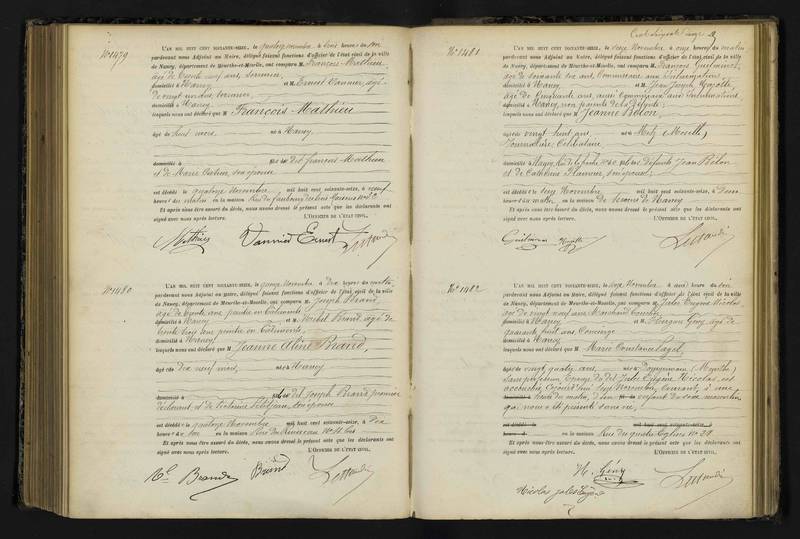 N° 1479
L'AN MIL HUIT CENT SOIXANTE-SEIZE, le quatorze novembre à trois heures du soir
pardevant nous Adjoint au Maire, délégué faisant fonctions d'officier de l'état civil de la ville
de Nancy, département de Meurthe-et-Moselle, ont comparu M. François Mathieu,
âgé de trente neuf ans,
domicilié à Nancy et M. Ernest Vannier, âgé
de vingt un ans,
domicilié à Nancy
lesquels nous ont déclaré que M François Mathieu
âgé de huit mois, né à Nancy,
domicilié à fils de dit François Mathieu
et de Marie son épouse
est décédé le quatorze novembre, mil huit cent soixante-seize, à neuf
heures du matin en la maison Rue du faubourg des trois Maisons
Et après nous être assuré du décès, nous avons dressé le présent acte que les déclarants ont
signé avec nous après lecture. L'OFFICIER DE L'ÉTAT CIVIL,
Mathieu Vannier Ernest
N° 1480
L'AN MIL HUIT CENT SOIXANTE-SEIZE, le quinze novembre à dix heures du matin,
pardevant nous Adjoint au Maire, délégué faisant fonctions d'officier de l'état civil de la ville
de Nancy, département de Meurthe-et-Moselle, ont comparu M. Joseph Brand,
âgé de trente ans, peintre en bâtiments
domicilié à Nancy et M. Michel Brand, âgé de
trente cinq ans, peintre en bâtiments,
domicilié à Nancy
lesquels nous ont déclaré que M Jeanne Aline Brand,
âgée de dix neuf mois, née à Nancy
domicilié à fille de dit Joseph Brand premier
déclarant et de Victorine son épouse
est décédée le quatorze Novembre mil huit cent soixante-seize, à dix
heures du soir en la maison Rue du Ruisseau
Et après nous être assuré du décès, nous avons dressé le présent acte que les déclarants ont
signé avec nous après lecture. L'OFFICIER DE L'ÉTAT CIVIL,
Brand Brand
N° 1481
L'AN MIL HUIT CENT SOIXANTE-SEIZE, le seize Novembre à onze heures du matin
pardevant nous Adjoint au Maire, délégué faisant fonctions d'officier de l'état civil de la ville
de Nancy, département de Meurthe-et-Moselle, ont comparu M. François
âgé de soixante six ans, Commissaire aux Inhumations,
domicilié à Nancy et M. Jean Joseph
âgé de Cinquante ans, aussi Commissaire aux Inhumations
domicilié à Nancy, non parents de la défunte;
lesquels nous ont déclaré que M Jeanne Bolon,
âgée de vingt huit ans, née à Metz (Moselle)
Journalière, Célibataire
domiciliée à Nancy, fille des défunts Jean Bolon
et de Catherine son épouse
est décédée le seize Novembre, mil huit cent soixante-seize, à deux
heures du matin en la maison de secours de Nancy
Et après nous être assuré du décès, nous avons dressé le présent acte que les déclarants ont
signé avec nous après lecture. L'OFFICIER DE L'ÉTAT CIVIL,
N° 1482
L'AN MIL HUIT CENT SOIXANTE-SEIZE, le seize Novembre à heures du soir
pardevant nous Adjoint au Maire, délégué faisant fonctions d'officier de l'état civil de la ville
de Nancy, département de Meurthe-et-Moselle, ont comparu M. Jules Eugène Nicolas,
âgé de vingt neuf ans, Marchand
domicilié à Nancy et M. Gény, âgé de
quarante huit ans Concierge
domicilié à Nancy
lesquels nous ont déclaré que Marie Constance
âgée de vingt quatre ans, née à (Meurthe)
sans profession, Épouse du dit Jules Eugène Nicolas, est
accouchée Novembre Courant, à une
heure du matin, d'un enfant du sexe masculin
qui nous a été présenté sans vie,
est décédé mil huit cent soixante-seize à
heures en la maison Rue des quatre Églises N° 28
Et après nous être assuré du décès, nous avons dressé le présent acte que les déclarants ont
signé avec nous après lecture. L'OFFICIER DE L'ÉTAT CIVIL,
H. Gény
Nicolas Jules Eugène